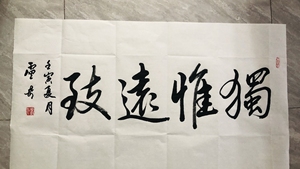 獨惟遠致
壬寅夏月